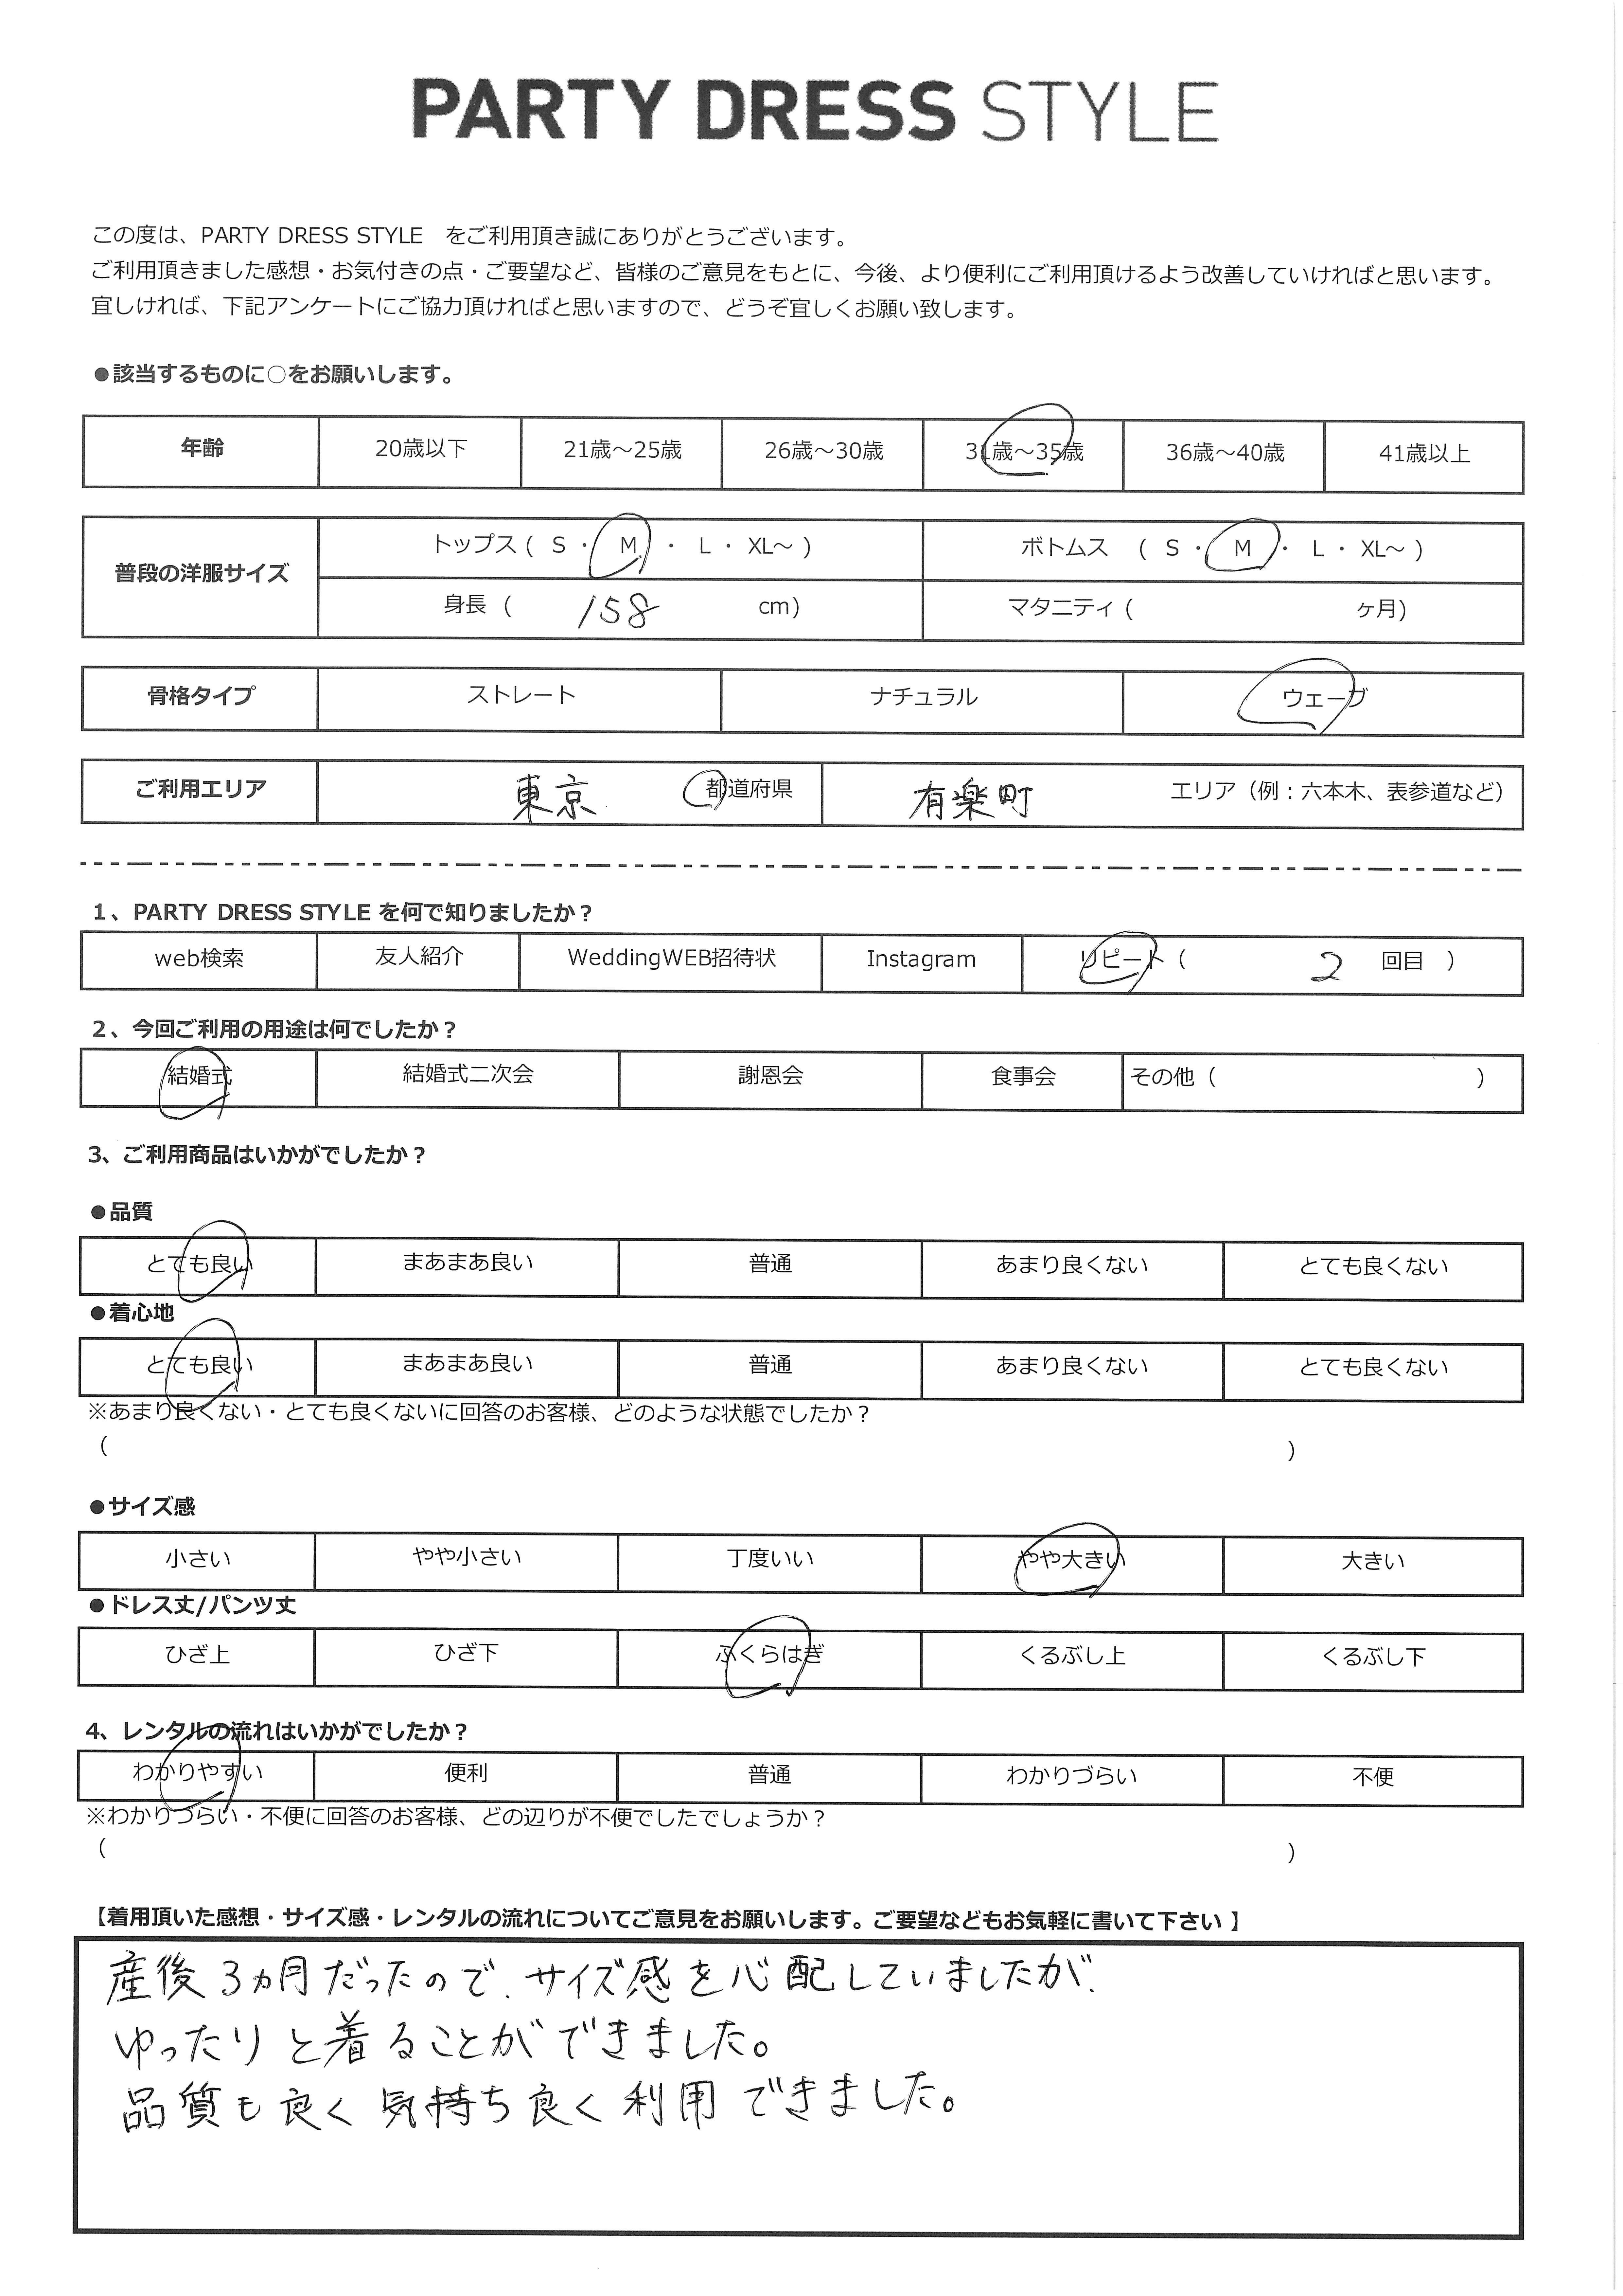 PARTY DRESS STYLE
この度は、PARTY DRESS STYLE をご利用頂き誠にありがとうございます。
ご利用頂きました感想・お気付きの点・ご要望など、皆様のご意見をもとに、今後、より便利にご利用頂けるよう改善していければと思います。
宜しければ、下記アンケートにご協力頂ければと思いますので、どうぞ宜しくお願い致します。
●該当するものに○をお願いします。
年齢 20歳以下 21歳～25歳 26歳～30歳 31歳～35歳 36歳～40歳 41歳以上
普段の洋服サイズ
トップス ( S ・ M ・ L ・ XL～ ) ボトムス ( S ・ M ・ L ・ XL～ )
身長 ( 158 cm) マタニティ ( ヶ月)
骨格タイプ ストレート ナチュラル ウェーブ
ご利用エリア 東京 都道府県 有楽町 エリア（例：六本木、表参道など）
1、PARTY DRESS STYLE を何で知りましたか？
web検索 友人紹介 WeddingWEB招待状 Instagram リピート ( 2 回目 )
2、今回ご利用の用途は何でしたか？
結婚式 結婚式二次会 謝恩会 食事会 その他 ( )
3、ご利用商品はいかがでしたか？
●品質
とても良い まあまあ良い 普通 あまり良くない とても良くない
●着心地
とても良い まあまあ良い 普通 あまり良くない とても良くない
※あまり良くない・とても良くないに回答のお客様、どのような状態でしたか？
( )
●サイズ感
小さい やや小さい 丁度いい やや大きい 大きい
●ドレス丈/パンツ丈
ひざ上 ひざ下 ふくらはぎ くるぶし上 くるぶし下
4、レンタルの流れはいかがでしたか？
わかりやすい 便利 普通 わかりづらい 不便
※わかりづらい・不便に回答のお客様、どの辺りが不便でしたでしょうか？
( )
【着用頂いた感想・サイズ感・レンタルの流れについてご意見をお願いします。ご要望などもお気軽に書いて下さい 】
産後3ヵ月だったので、サイズ感を心配していましたが、
ゆったりと着ることができました。
品質も良く気持ち良く利用できました。